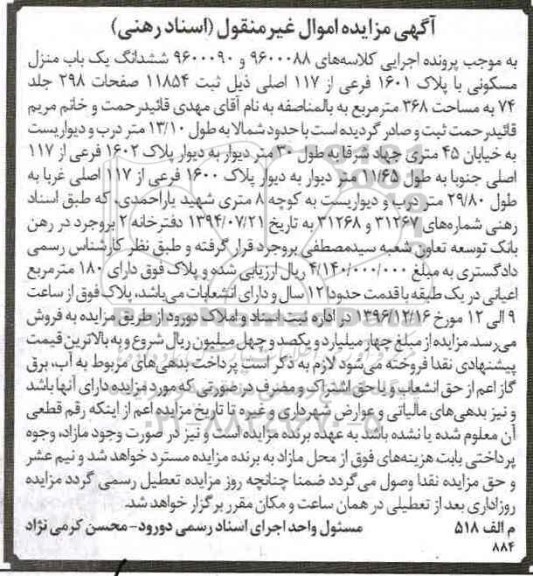 آگهی مزایده اموال غیرمنقول (اسناد رهنی)
به موجب پرونده اجرایی کلاسه‌های ۹۶۰۰۰۸۸ و ۹۶۰۰۰۹۰ ششدانگ یک باب منزل
مسکونی با پلاک ۱۶۰۱ فرعی از ۱۱۷ اصلی ذیل ثبت ۱۱۸۵۴ صفحات ۲۹۸ جلد
۷۴ به مساحت ۳۶۸ مترمربع به بالمناصفه به نام آقای مهدی قائیدرحمت و خانم مریم
قائیدرحمت ثبت و صادر گردیده است با حدود شمالا به طول ۱۳/۱۰ متر درب و دیواریست
به خیابان ۴۵ متری جهاد شرقا به طول ۳۰ متر دیوار به دیوار پلاک ۱۶۰۲ فرعی از ۱۱۷
اصلی جنوبا به طول ۱۱/۶۵ متر دیوار به دیوار پلاک ۱۶۰۰ فرعی از ۱۱۷ اصلی غربا به
طول ۲۹/۸۰ متر درب و دیواریست به کوچه ۸ متری شهید یاراحمدی، که طبق اسناد
رهنی شماره‌های ۳۱۲۶۷ و ۳۱۲۶۸ به تاریخ ۱۳۹۴/۰۷/۲۱ دفترخانه ۲ بروجرد در رهن
بانک توسعه تعاون شعبه سیدمصطفی بروجرد قرار گرفته و طبق نظر کارشناس رسمی
دادگستری به مبلغ ۴/۱۴۰/۰۰۰/۰۰۰ ریال ارزیابی شده و پلاک فوق دارای ۱۸۰ مترمربع
اعیانی در یک طبقه با قدمت حدودا ۱۲ سال و دارای انشعابات می‌باشد، پلاک فوق از ساعت
۹ الی ۱۲ مورخ ۱۳۹۶/۱۲/۱۶ در اداره ثبت اسناد و املاک دورود از طریق مزایده به فروش
می‌رسد. مزایده از مبلغ چهار میلیارد و یکصد و چهل میلیون ریال شروع و به بالاترین قیمت
پیشنهادی نقدا فروخته می‌شود لازم به ذکر است پرداخت بدهی‌های مربوط به آب، برق
گاز اعم از حق انشعاب و یا حق اشتراک و مصرف در صورتی که مورد مزایده دارای آنها باشد
و نیز بدهی‌های مالیاتی و عوارض شهرداری و غیره تا تاریخ مزایده اعم از اینکه رقم قطعی
آن معلوم شده یا نشده باشد به عهده برنده مزایده است و نیز در صورت وجود مازاد، وجوه
پرداختی بابت هزینه‌های فوق از محل مازاد به برنده مزایده مسترد خواهد شد و نیم عشر
و حق مزایده نقدا وصول می‌گردد ضمنا چنانچه روز مزایده تعطیل رسمی گردد مزایده
روز اداری بعد از تعطیلی در همان ساعت و مکان مقرر برگزار خواهد شد.
م الف ۵۱۸ مسئول واحد اجرای اسناد رسمی دورود- محسن کرمی نژاد
۸۸۴